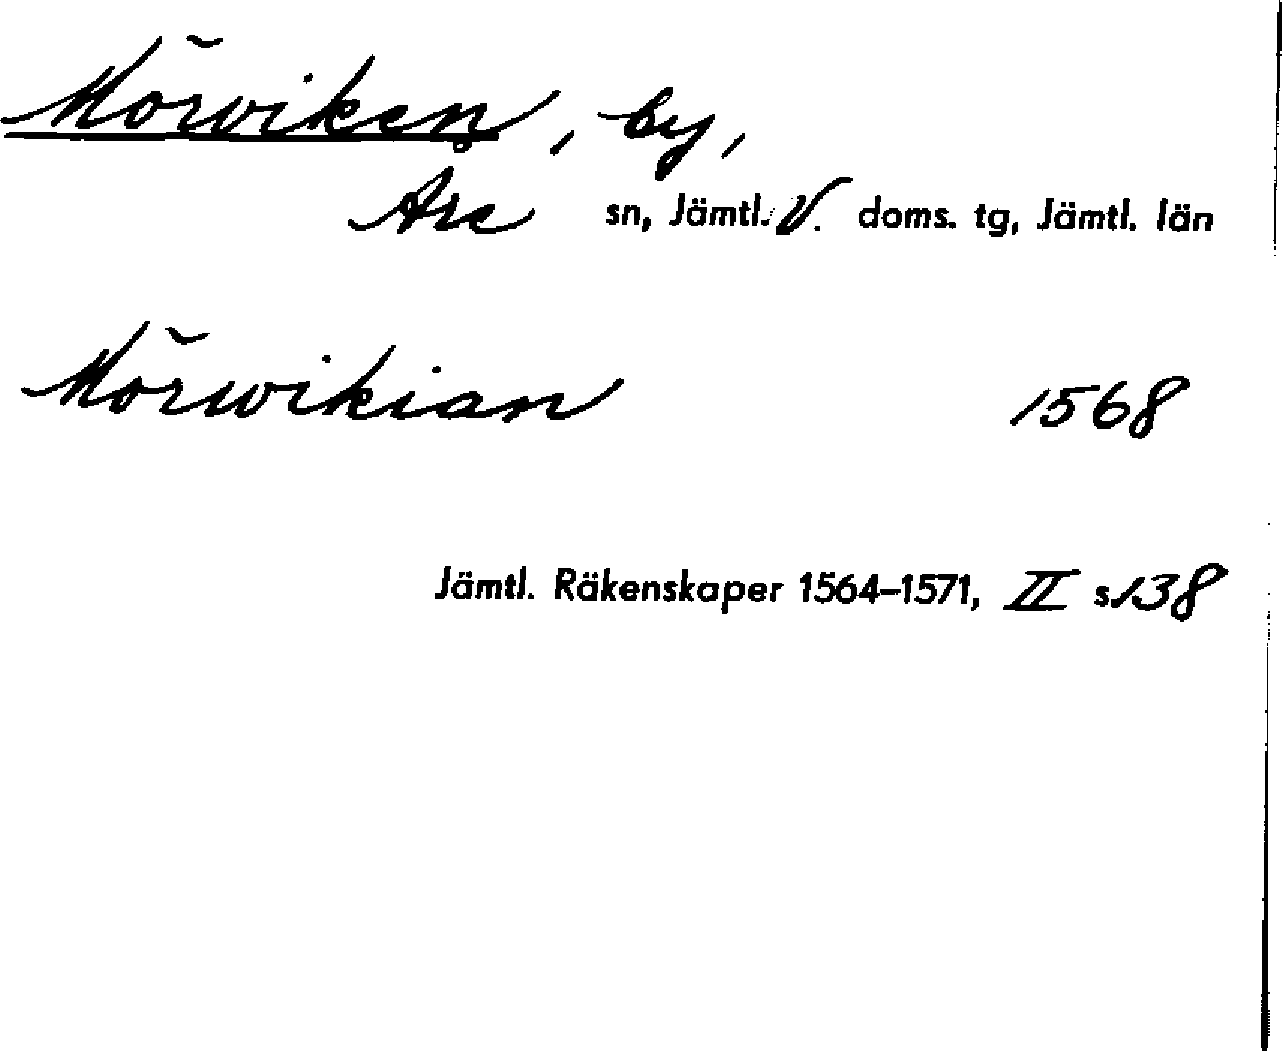 Mörviken, by,
Åre sn, Jämtl. V. doms. tg, Jämtl. län
Mörwikian 1568
Jämtl. Räkenskaper 1564–1571, II s. 138